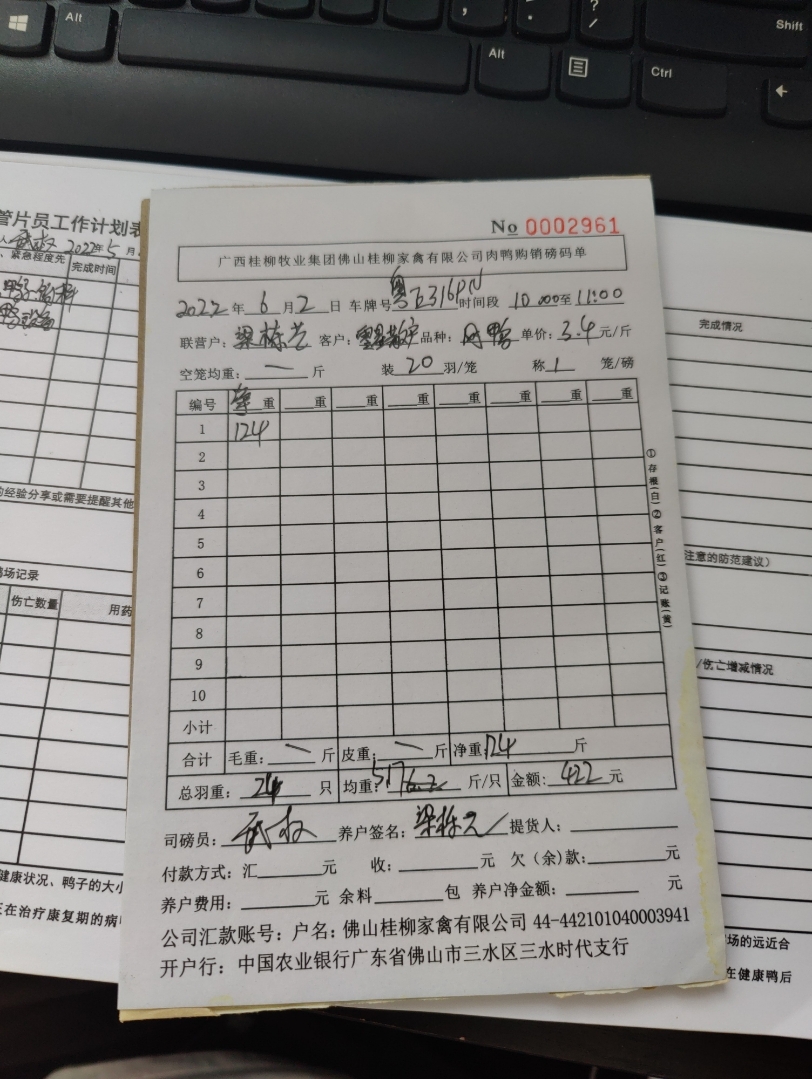 Alt
Shift
Alt
Ctrl
管片员工作计划表
2022年5月
、紧急程度先
完成时间
完成情况
No 0002961
广西桂柳牧业集团佛山桂柳家禽有限公司肉鸭购销磅码单
2022年6月2日 车牌号 粤 时间段 10:00至11:00
联营户: 梁栋 客户: 品种: 肉鸭 单价: 3.4元/斤
空笼均重: 一 斤 装 20 羽/笼 称 1 笼/磅
编号 重 重 重 重 重 重 重 重
1 124
2
3
4
5
6
7
8
9
10
小计
合计 毛重: 一 斤 皮重: 一 斤 净重: 124 斤
总羽重: 24 只 均重: 5.17 斤/只 金额: 422 元
司磅员: 武权 养户签名: 梁栋 提货人:
付款方式: 汇 元 收: 元 欠(余)款: 元
养户费用: 元 余料 包 养户净金额: 元
公司汇款账号: 户名: 佛山桂柳家禽有限公司 44-442101040003941
开户行: 中国农业银行广东省佛山市三水区三水时代支行
①存根(白)②客户(红)③记账(黄)
的经验分享或需要提醒其他
场记录
伤亡数量
用药
注意的防范建议)
/伤亡增减情况
健康状况、鸭子的大小
在治疗康复期的病
场的远近合
在健康鸭后